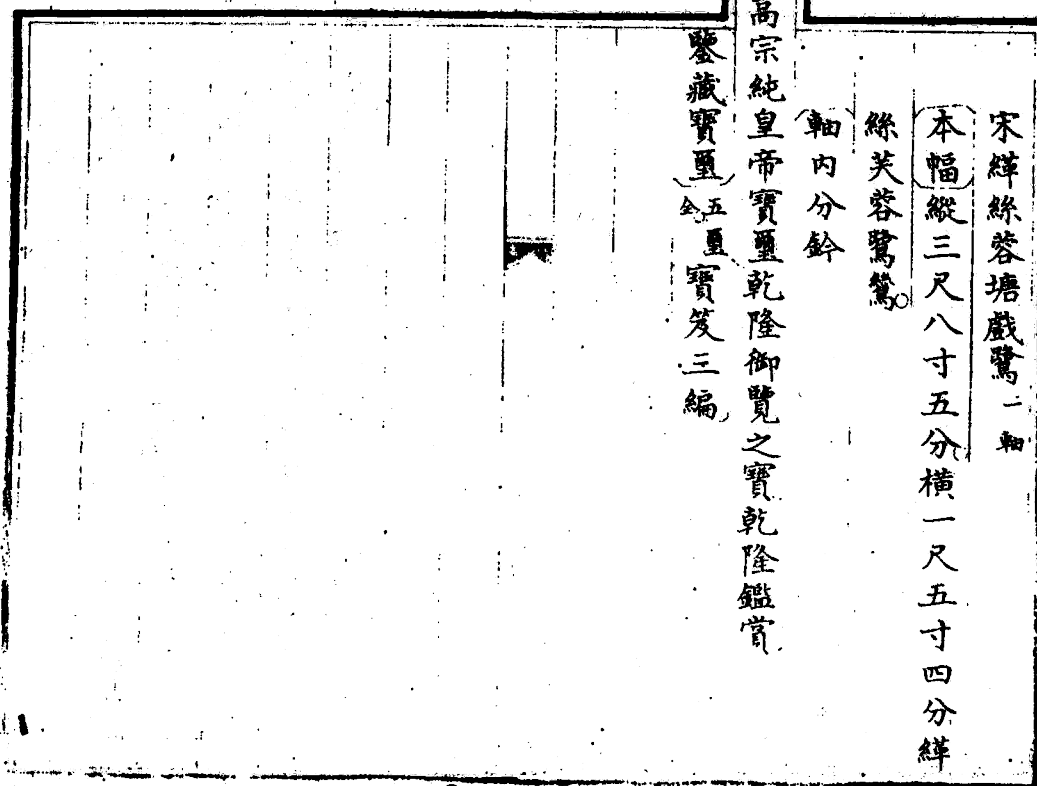 宋緙絲蓉塘戲鷺一軸
本幅縱三尺八寸五分橫一尺五寸四分緙
絲芙蓉鷺鷥
軸內分鈐
高宗純皇帝寶璽乾隆御覽之寶乾隆鑑賞
鑒藏寶璽五璽全寶笈三編